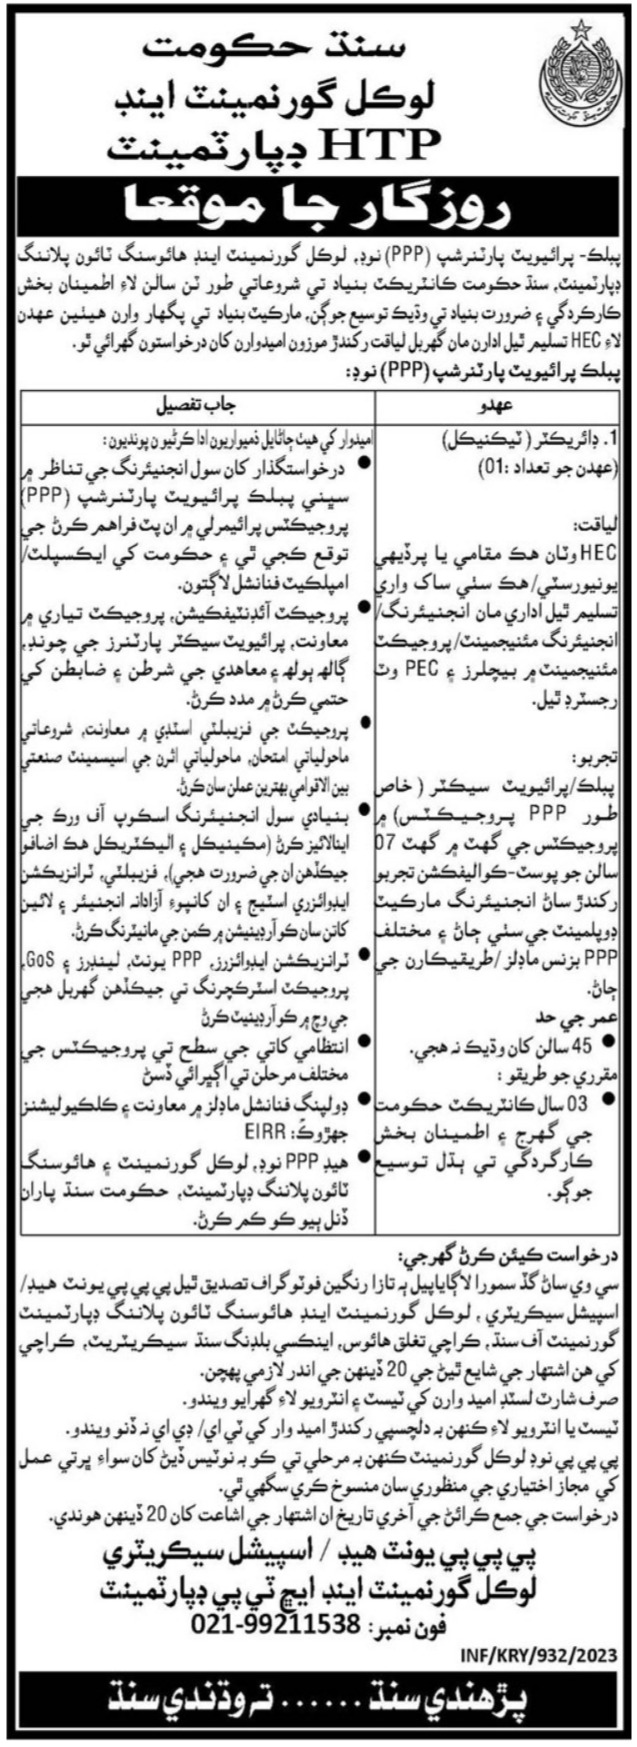 سنڌ حڪومت
لوڪل گورنمينٽ اينڊ
HTP ڊپارٽمينٽ
روزگار جا موقعا
پبلڪ- پرائيويٽ پارٽنرشپ (PPP) نوڊ، لوڪل گورنمينٽ اينڊ هائوسنگ ٽائون پلاننگ
ڊپارٽمينٽ، سنڌ حڪومت ڪانٽريڪٽ بنياد تي شروعاتي طور ٽن سالن لاءِ اطمينان بخش
ڪارڪردگي ۽ ضرورت بنياد تي وڌيڪ توسيع جوڳن، مارڪيٽ بنياد تي پگهار وارن هيٺين عهدن
لاءِ HEC تسليم ٿيل ادارن مان گهربل لياقت رکندڙ موزون اميدوارن کان درخواستون گهرائي ٿو.
پبلڪ پرائيويٽ پارٽنرشپ (PPP) نوڊ:
عهدو
1. ڊائريڪٽر (ٽيڪنيڪل)
(عهدن جو تعداد :01)
لياقت:
HEC وٽان هڪ مقامي يا پرڏيهي
يونيورسٽي/هڪ سٺي ساک واري
تسليم ٿيل اداري مان انجنيئرنگ/
انجنيئرنگ مئنيجمينٽ/پروجيڪٽ
مئنيجمينٽ ۾ بيچلرز ۽ PEC وٽ
رجسٽرڊ ٿيل.
تجربو:
پبلڪ/پرائيويٽ سيڪٽر (خاص
طور PPP پروجيڪٽس) ۾
پروجيڪٽس جي گهٽ ۾ گهٽ 07
سالن جو پوسٽ-ڪواليفڪشن تجربو
رکندڙ ساڻ انجنيئرنگ مارڪيٽ
ڊوپلمينٽ جي سٺي ڄاڻ ۽ مختلف
PPP بزنس ماڊلز /طريقيڪارن جي
ڄاڻ.
عمر جي حد
● 45 سالن کان وڌيڪ نه هجي.
مقرري جو طريقو:
● 03 سال ڪانٽريڪٽ حڪومت
جي گهرج ۽ اطمينان بخش
ڪارگردگي تي ٻڌل توسيع
جوڳو.
جاب تفصيل
اميدوار کي هيٺ ڄاڻايل ذميواريون ادا ڪرڻيون پونديون:
● درخواستگذار کان سول انجنيئرنگ جي تناظر ۾
سڀني پبلڪ پرائيويٽ پارٽنرشپ (PPP)
پروجيڪٽس پرائيمرلي ۾ ان پٽ فراهم ڪرڻ جي
توقع ڪجي ٿي ۽ حڪومت کي ايڪسپلٽ/
امپلڪيٽ فنانشل لاڳتون.
● پروجيڪٽ آئڊنٽيفڪيشن، پروجيڪٽ تياري ۾
معاونت، پرائيويٽ سيڪٽر پارٽنرز جي چونڊ،
ڳالهه ٻولهه ۽ معاهدي جي شرطن ۽ ضابطن کي
حتمي ڪرڻ ۾ مدد ڪرڻ.
● پروجيڪٽ جي فزيبلٽي اسٽڊي ۾ معاونت، شروعاتي
ماحولياتي امتحان، ماحولياتي اثرن جي اسيسمينٽ صنعتي
بين الاقوامي بهترين عملن سان ڪرڻ.
● بنيادي سول انجنيئرنگ اسڪوپ آف ورڪ جي
اينالائيز ڪرڻ (مڪينيڪل ۽ اليڪٽريڪل هڪ اضافو
جيڪڏهن ان جي ضرورت هجي)، فزيبلٽي، ٽرانزيڪشن
ايڊوائزري اسٽيج ۽ ان کانپوءِ آزادانه انجنيئر ۽ لائين
کاتن سان ڪوآرڊينيشن ۾ ڪمن جي مانيٽرنگ ڪرڻ.
● ٽرانزيڪشن ايڊوائزرز، PPP يونٽ، لينڊرز ۽ GoS،
پروجيڪٽ اسٽرڪچرنگ تي جيڪڏهن گهربل هجي
جي وچ ۾ ڪوآرڊينيٽ ڪرڻ
● انتظامي کاتي جي سطح تي پروجيڪٽس جي
مختلف مرحلن تي اڳڀرائي ڏسڻ
● ڊولپنگ فنانشل ماڊلز ۾ معاونت ۽ ڪلڪيوليشنز
جهڙوڪ: EIRR
● هيڊ PPP نوڊ، لوڪل گورنمينٽ ۽ هائوسنگ
ٽائون پلاننگ ڊپارٽمينٽ، حڪومت سنڌ پاران
ڏنل ٻيو ڪو ڪم ڪرڻ.
درخواست ڪيئن ڪرڻ گهرجي:
سي وي ساڻ گڏ سمورا لاڳاپيل ٻه تازا رنگين فوٽوگراف تصديق ٿيل پي پي پي يونٽ هيڊ/
اسپيشل سيڪريٽري، لوڪل گورنمينٽ اينڊ هائوسنگ ٽائون پلاننگ ڊپارٽمينٽ
گورنمينٽ آف سنڌ، ڪراچي تغلق هائوس، اينڪسي بلڊنگ سنڌ سيڪريٽريٽ، ڪراچي
کي هن اشتهار جي شايع ٿيڻ جي 20 ڏينهن جي اندر لازمي پهچن.
صرف شارٽ لسٽڊ اميدوارن کي ٽيسٽ ۽ انٽرويو لاءِ گهرايو ويندو.
ٽيسٽ يا انٽرويو لاءِ ڪنهن به دلچسپي رکندڙ اميدوار کي ٽي اي/ ڊي اي نه ڏنو ويندو.
پي پي پي نوڊ لوڪل گورنمينٽ ڪنهن به مرحلي تي ڪو به نوٽيس ڏيڻ کان سواءِ ڀرتي عمل
کي مجاز اختياري جي منظوري سان منسوخ ڪري سگهي ٿي.
درخواست جي جمع ڪرائڻ جي آخري تاريخ ان اشتهار جي اشاعت کان 20 ڏينهن هوندي.
پي پي پي يونٽ هيڊ / اسپيشل سيڪريٽري
لوڪل گورنمينٽ اينڊ ايڇ ٽي پي ڊپارٽمينٽ
فون نمبر: 021-99211538
INF/KRY/932/2023
پڙهندي سنڌ ...... ته وڌندي سنڌ